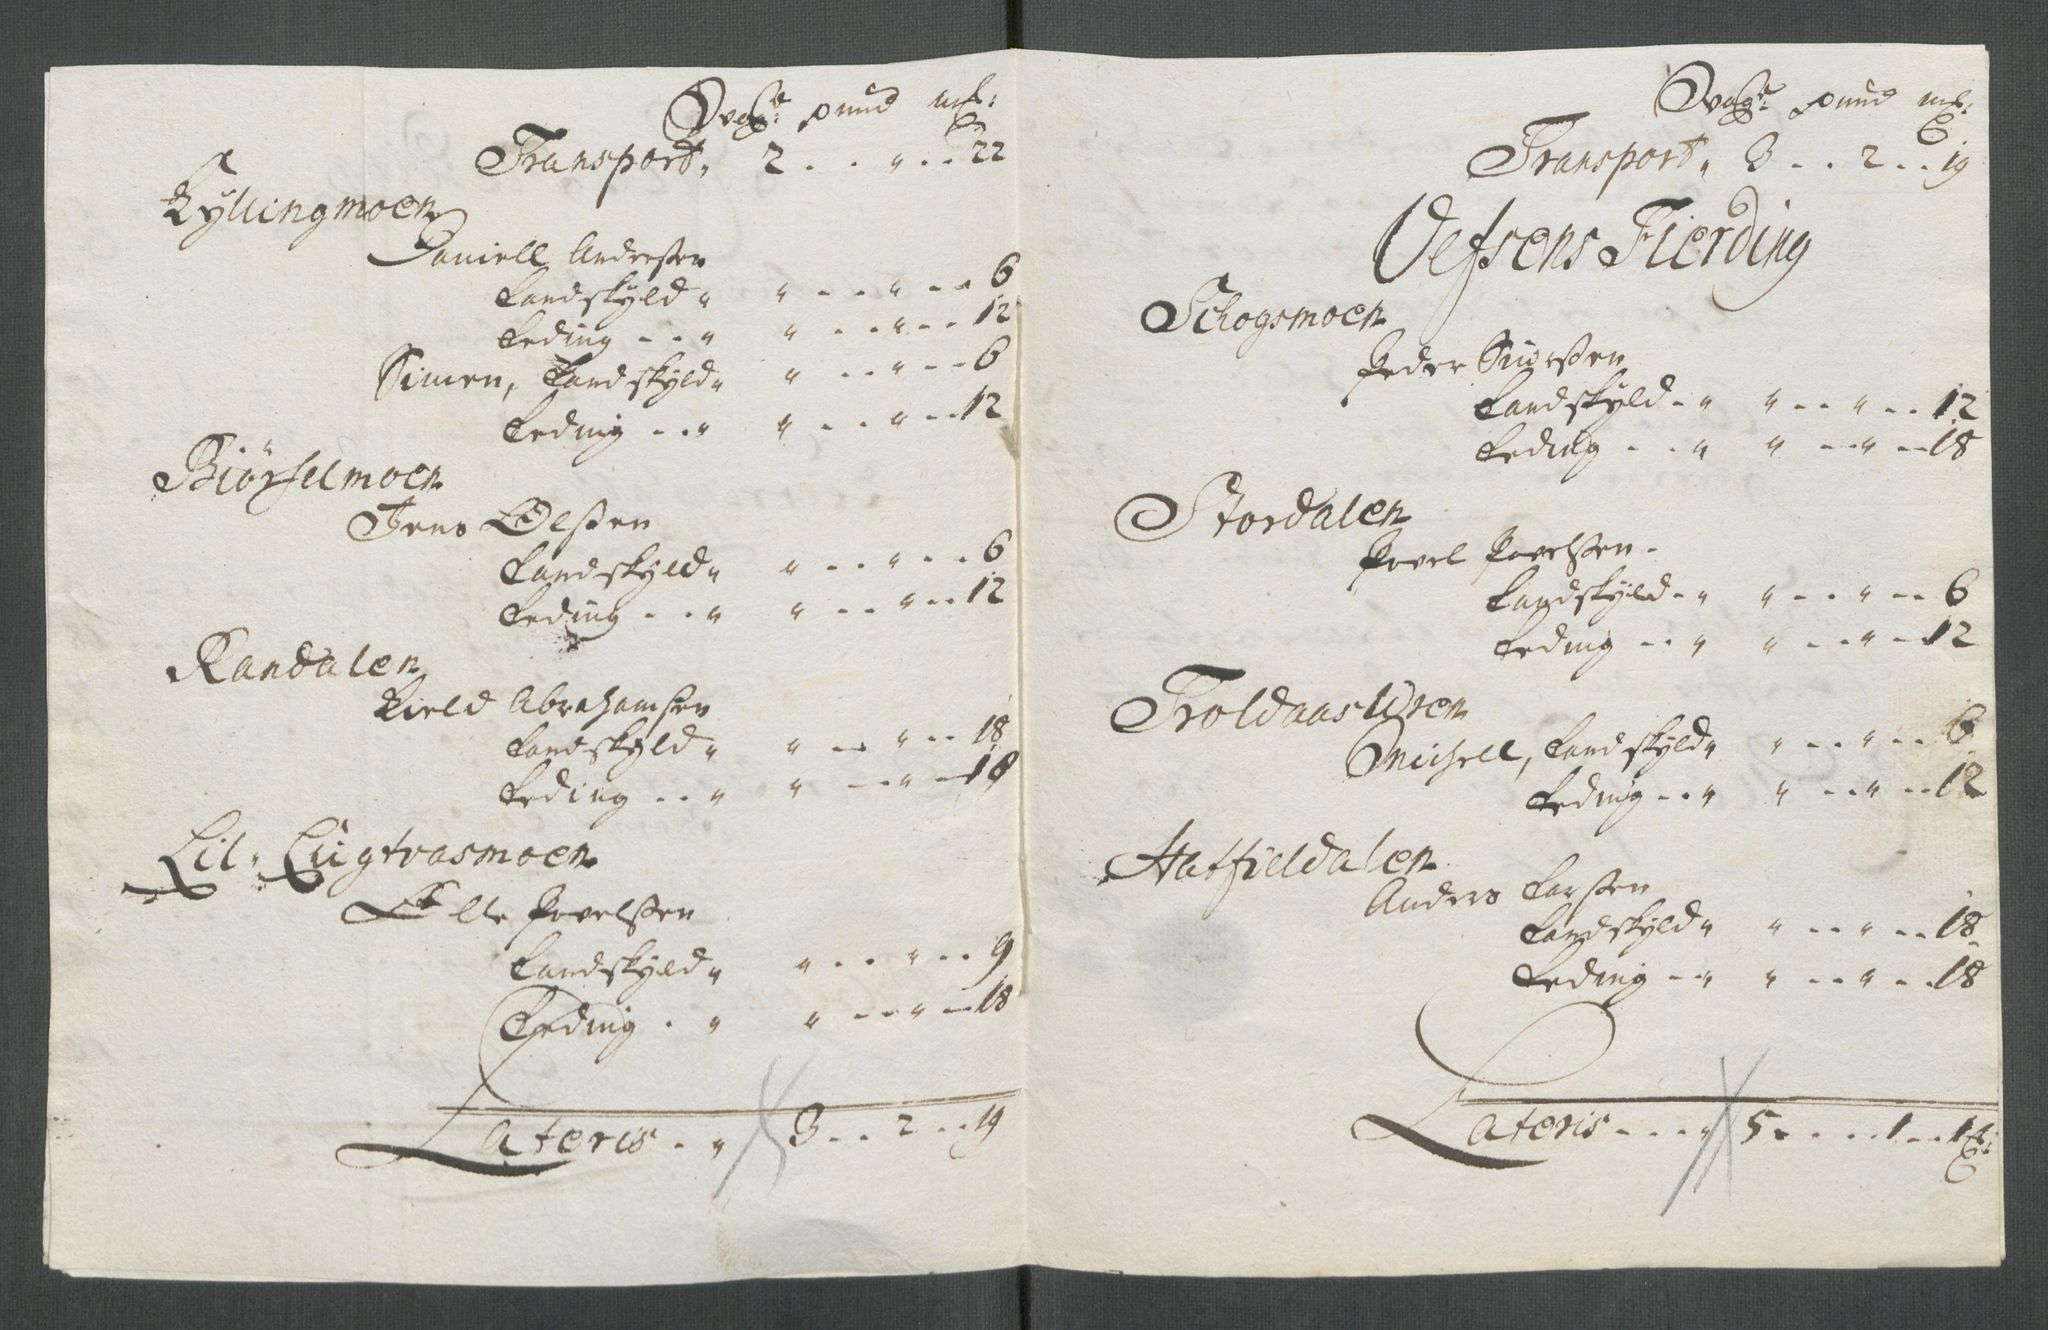 Svage: pund mk:
Transport„ 2 . . „ . . 22
Kyllingmoen
Daniell Anderßen
Landskyld „ „ . . „ . . 6
Leding . . „ „ . . „ . . 12
Simen, Landskyld „ „ . . „ . . 6
Leding . . „ „ . . „ . . 12
Biørselmoen
Jens Olßen
Landskyld „ „ . . „ . . 6
Leding . . „ „ . . „ . . 12
Randalen
Kield Abrahamsen
Landskyld „ „ . . „ . . 18
Leding . . „ „ . . „ . . 18
Lil„ Lugtvasmoen
Olle Povelßen
Landskyld „ „ . . „ . . 9
Leding . „ „ . . „ . . 18
Lateris . . „ 3 . . 2 . . 19
Svage: pund mk:
Transport„ 3 . . 2 . . 19
Vefsens Fierding
Schogsmoen
Peder Siverßen
Landskyld . „ „ . . „ . . 12
Leding . . „ „ . . „ . . 18
Stordalen
Povel Povelßen.
Landskyld . „ „ . . „ . . 6
Leding . . „ „ . . „ . . 12
Troldaasuren
Michell, Landskyld „ „ . . „ . . 6
Leding . . „ „ . . „ . . 12
Hatfieldalen
Anders Larßen
Landskyld „ „ . . „ . . 18
Leding . . „ „ . . „ . . 18
Lateris . . . „ 5 . . . . 1 . . 1 mk: